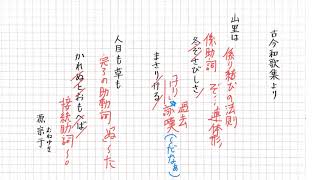 古今和歌集より
山里は
係り結びの法則
係助詞 ぞ…連体形
冬ぞさびしさ
過去
けり 詠嘆(~だなぁ)
まさりける
人目も草も
完了の助動詞 ぬ ~た
かれぬとおもへば
接続助詞 ~。
源宗于
むねゆき